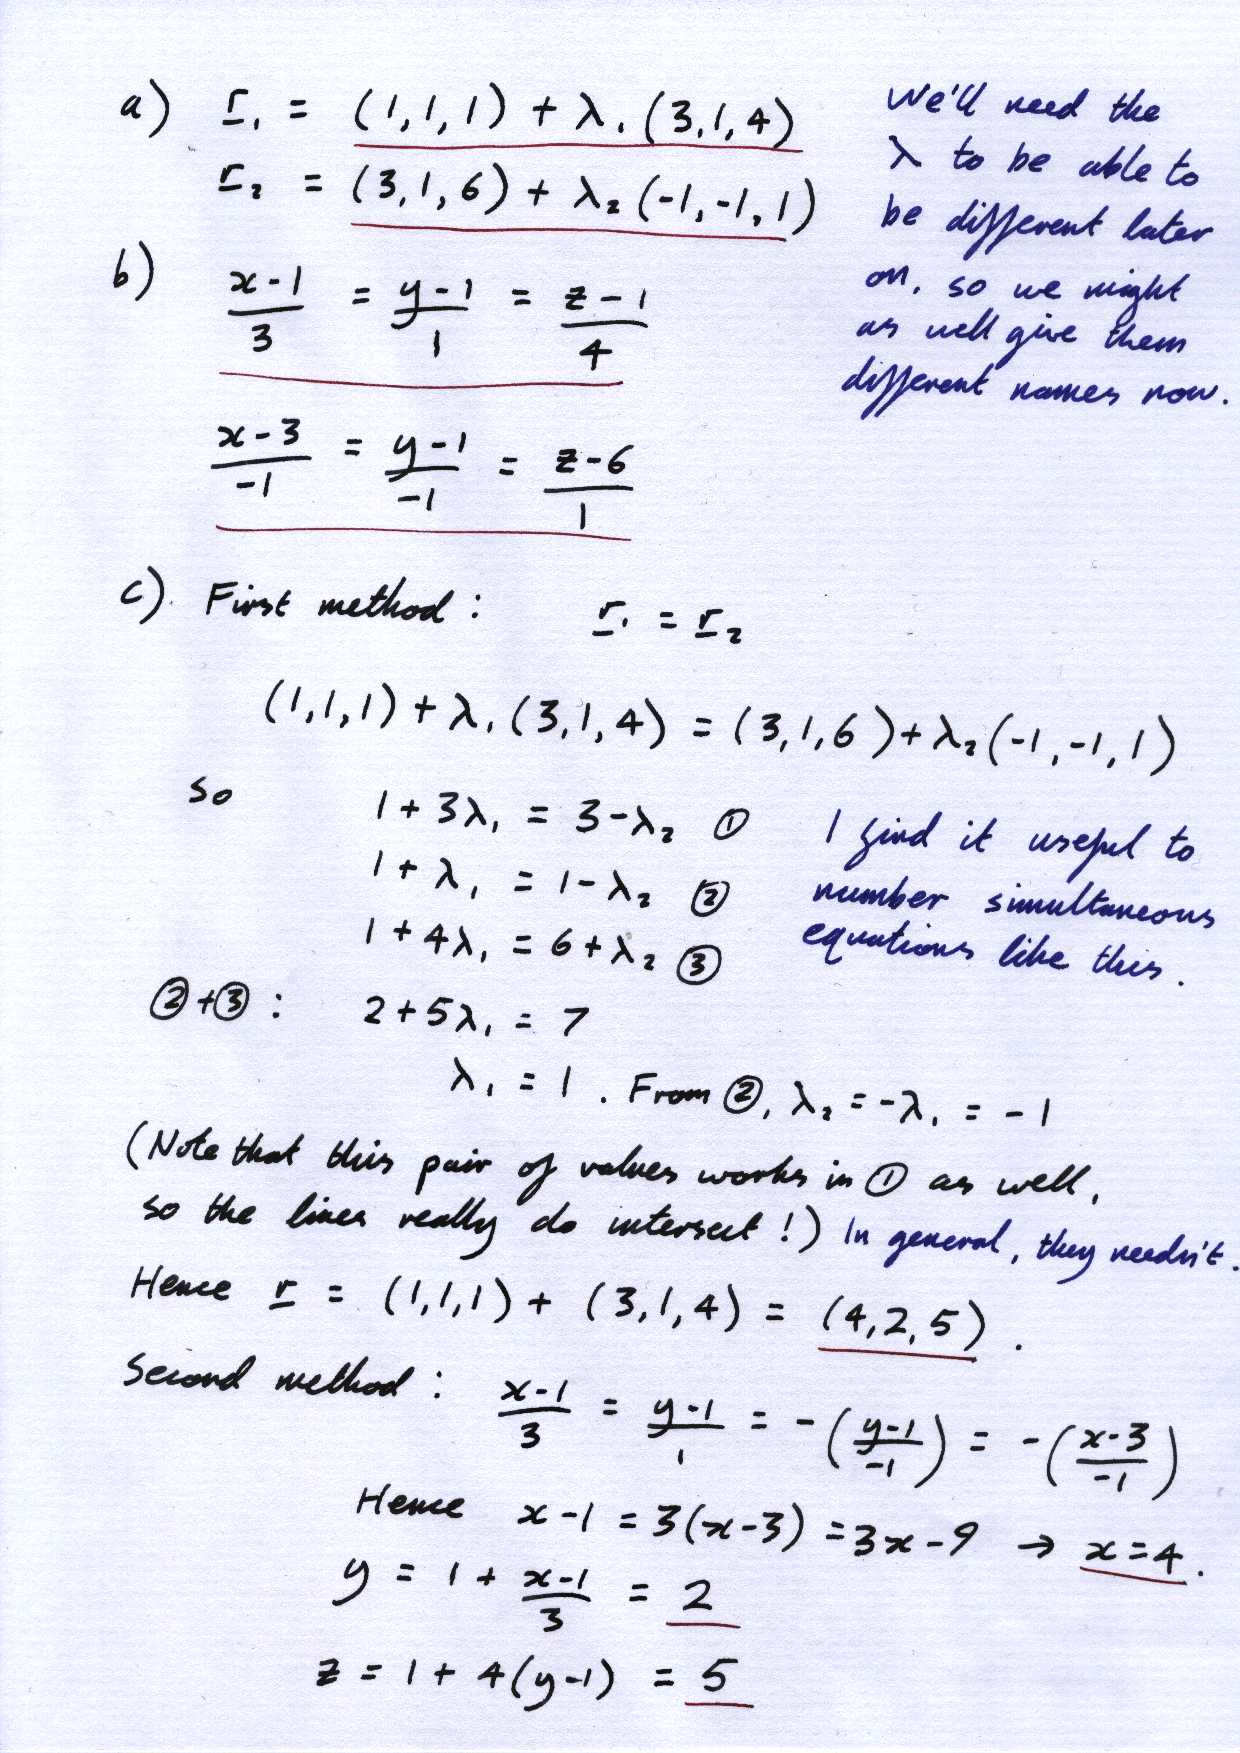 a) r₁ = (1,1,1) + λ₁(3,1,4)
r₂ = (3,1,6) + λ₂(-1,-1,1)
We'll need the
λ to be able to
be different later
on, so we might
as well give them
different names now.
b) (x-1)/3 = (y-1)/1 = (z-1)/4
(x-3)/-1 = (y-1)/-1 = (z-6)/1
c) First method: r₁ = r₂
(1,1,1) + λ₁(3,1,4) = (3,1,6) + λ₂(-1,-1,1)
so 1 + 3λ₁ = 3 - λ₂ ①
1 + λ₁ = 1 - λ₂ ②
1 + 4λ₁ = 6 + λ₂ ③
I find it useful to
number simultaneous
equations like this.
② + ③ : 2 + 5λ₁ = 7
λ₁ = 1. From ②, λ₂ = -λ₁ = -1
(Note that this pair of values works in ① as well,
so the lines really do intersect!) In general, they needn't.
Hence r = (1,1,1) + (3,1,4) = (4,2,5).
Second method: (x-1)/3 = (y-1)/1 = -((y-1)/-1) = -((x-3)/-1)
Hence x-1 = 3(x-3) = 3x-9 → x=4.
y = 1 + (x-1)/3 = 2
z = 1 + 4(y-1) = 5